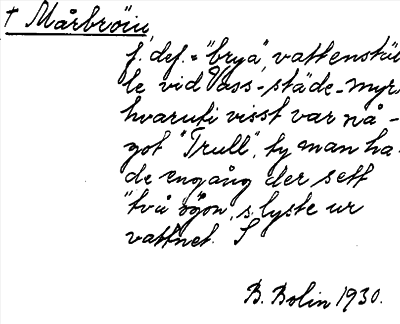 † Mårbröiu
f. def. = "brya", vattenstäl
le vid Vass-städe-myr
hvaruti visst var nå-
got "Trull", ty man ha-
de engång der sett
"två ögon, s. lyste ur
vattnet. S
B. Bolin 1930.